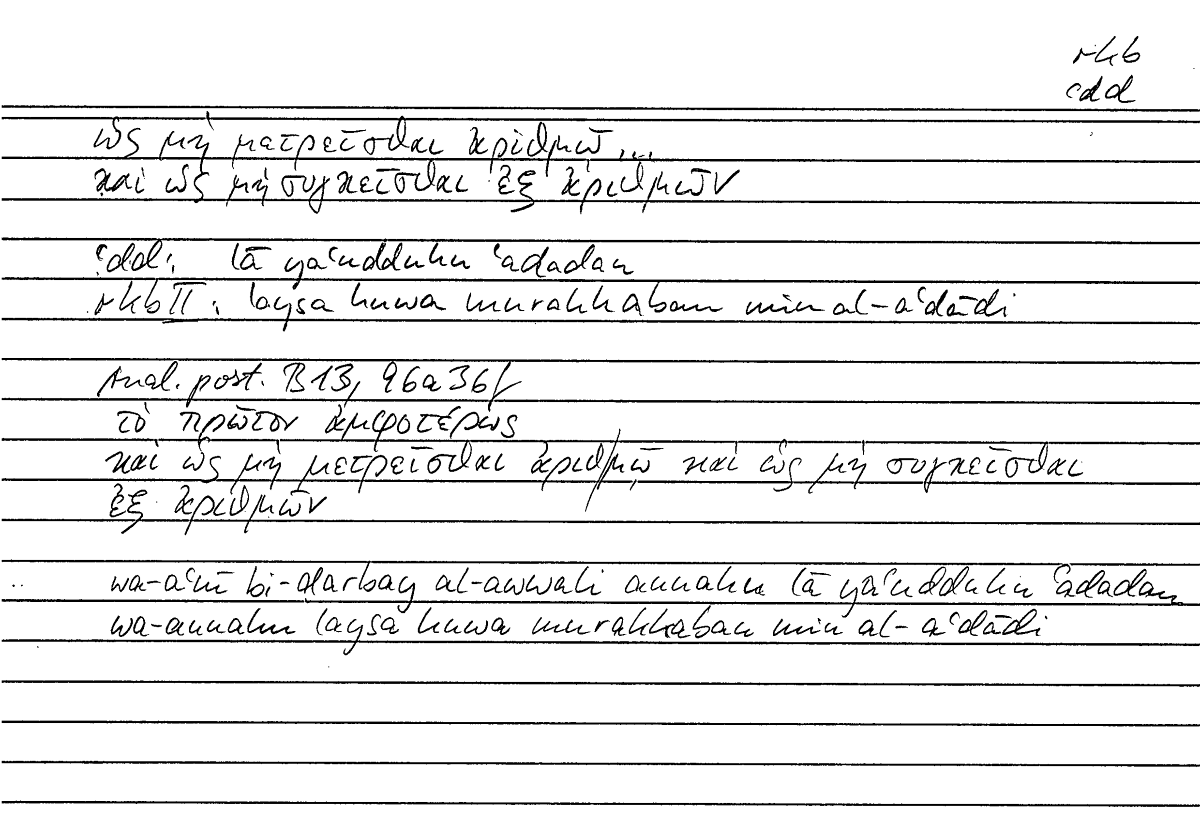 rkb
ʿdd
ὡς μὴ μετρεῖσθαι ἀριθμῷ ...
καὶ ὡς μὴ συγκεῖσθαι ἐξ ἀριθμῶν
ʿdd: lā yaʿudduhu ʿadadan
rkb II: laysa huwa murakkaban min al-aʿdādi
Anal. post. B13, 96a36f
τὸ πρῶτον ἀμφοτέρως
καὶ ὡς μὴ μετρεῖσθαι ἀριθμῷ καὶ ὡς μὴ συγκεῖσθαι
ἐξ ἀριθμῶν
wa-aʿnī bi-ḍarbay al-awwali annahu lā yaʿudduhu ʿadadan
wa-annahu laysa huwa murakkaban min al-aʿdādi